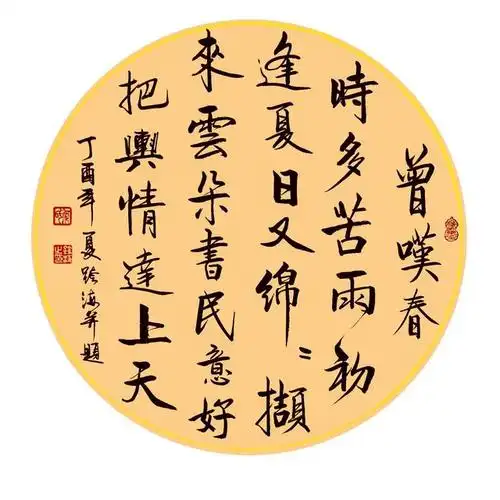 曾嘆春
時多苦雨初
逢夏日又綿〻擷
來雲朵書民意好
把輿情達上天
丁酉年夏海并題